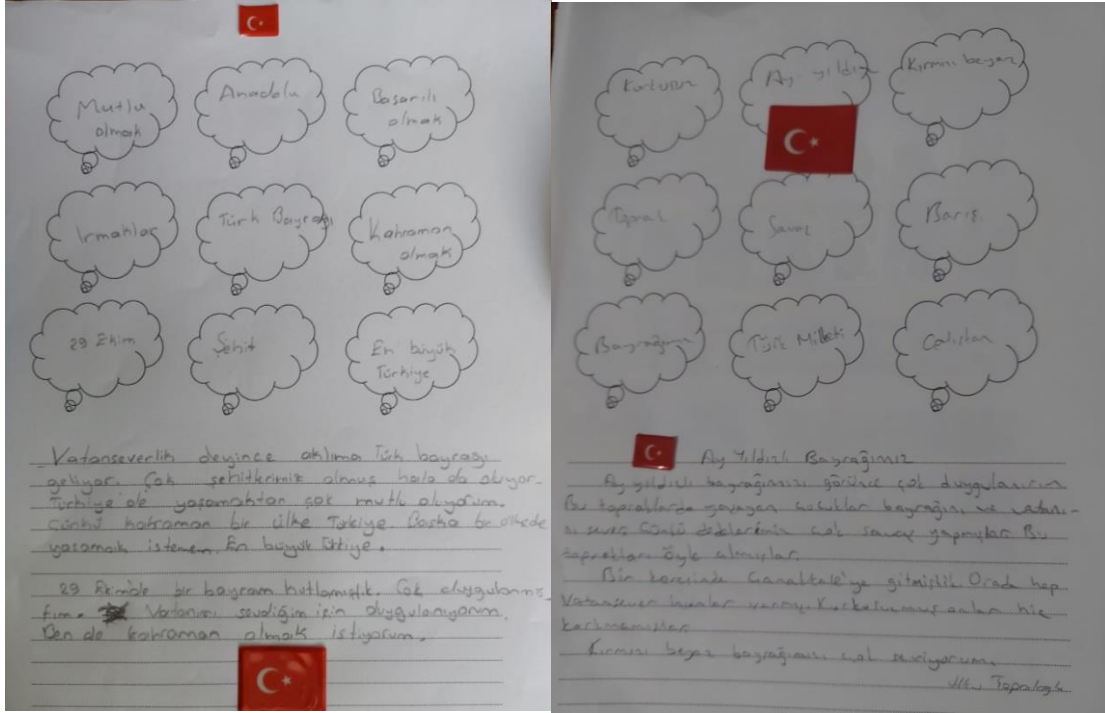 Mutlu
olmak
Anadolu
Başarılı
olmak
Irmaklar
Türk Bayrağı
Kahraman
olmak
29 Ekim
Şehit
En büyük
Türkiye
Vatanseverlik deyince aklıma Türk bayrağı
geliyor. Çok şehitlerimiz olmuş hala da oluyor.
Türkiye'de yaşamaktan çok mutlu oluyorum.
Çünkü kahraman bir ülke Türkiye. Başka bir ülkede
yaşamak istemem. En büyük Türkiye.
29 Ekimde bir bayram kutlamıştık. Çok duygulanmış-
tım. Vatanımı sevdiğim için duygulanıyorum.
Ben de kahraman olmak istiyorum.
Ay yıldız
Kırmızı beyaz
Toprak
Savaş
Barış
Bayrağım
Türk Milleti
Çalışkan
Ay Yıldızlı Bayrağımız
Ay yıldızlı bayrağımızı görünce çok duygulanırım
Bu topraklarda yaşayan çocuklar bayrağını ve vatanı-
nı sever Çünkü dedelerimiz çok savaş yapmışlar Bu
toprakları öyle almışlar.
Bin keresinde Çanakkale'ye gitmiştik Orada hep
Vatansever insanlar varmış Korkusuzmuş onlar hiç
korkmamışlar
Kırmızı beyaz bayrağımızı çok seviyorum.